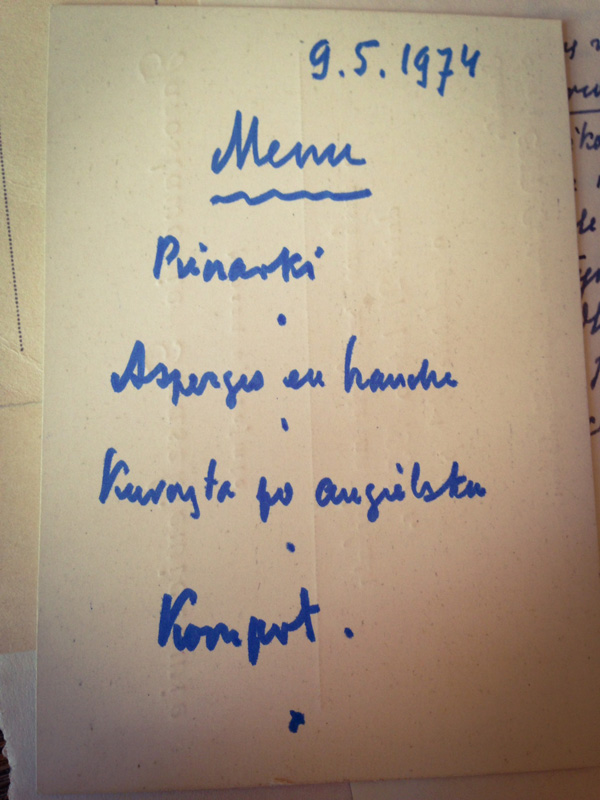 9.5.1974
Menu
Pieczarki
Asperges en branche
Kurczęta po angielsku
Kompot.